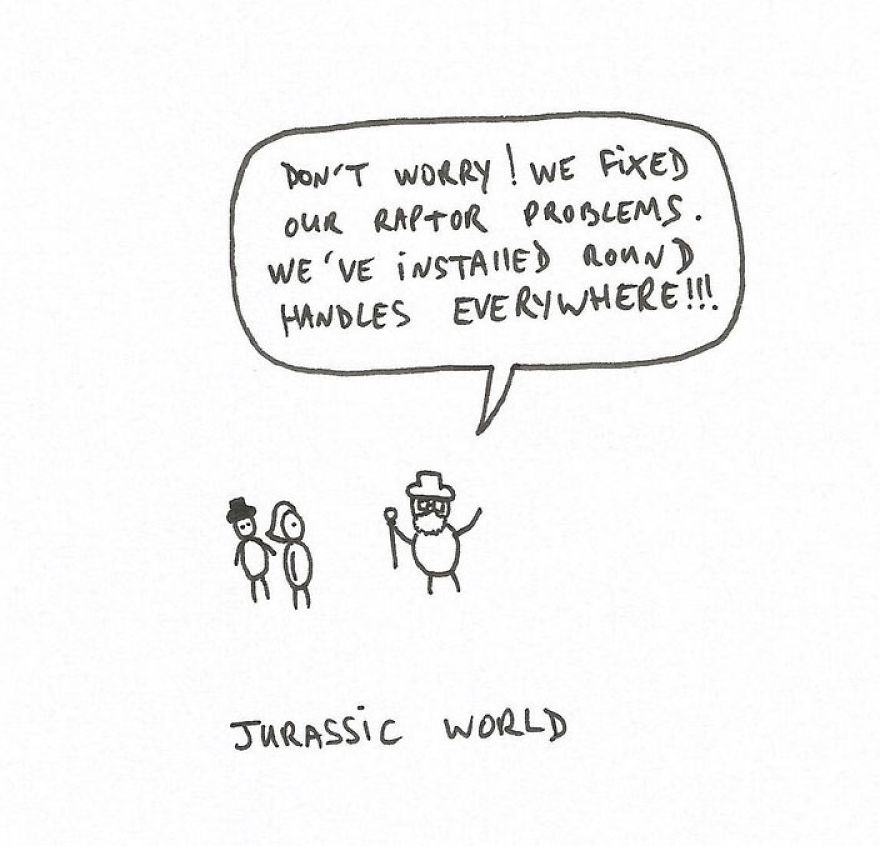 DON'T WORRY! WE FIXED
OUR RAPTOR PROBLEMS.
WE'VE INSTALLED ROUND
HANDLES EVERYWHERE!!!
JURASSIC WORLD